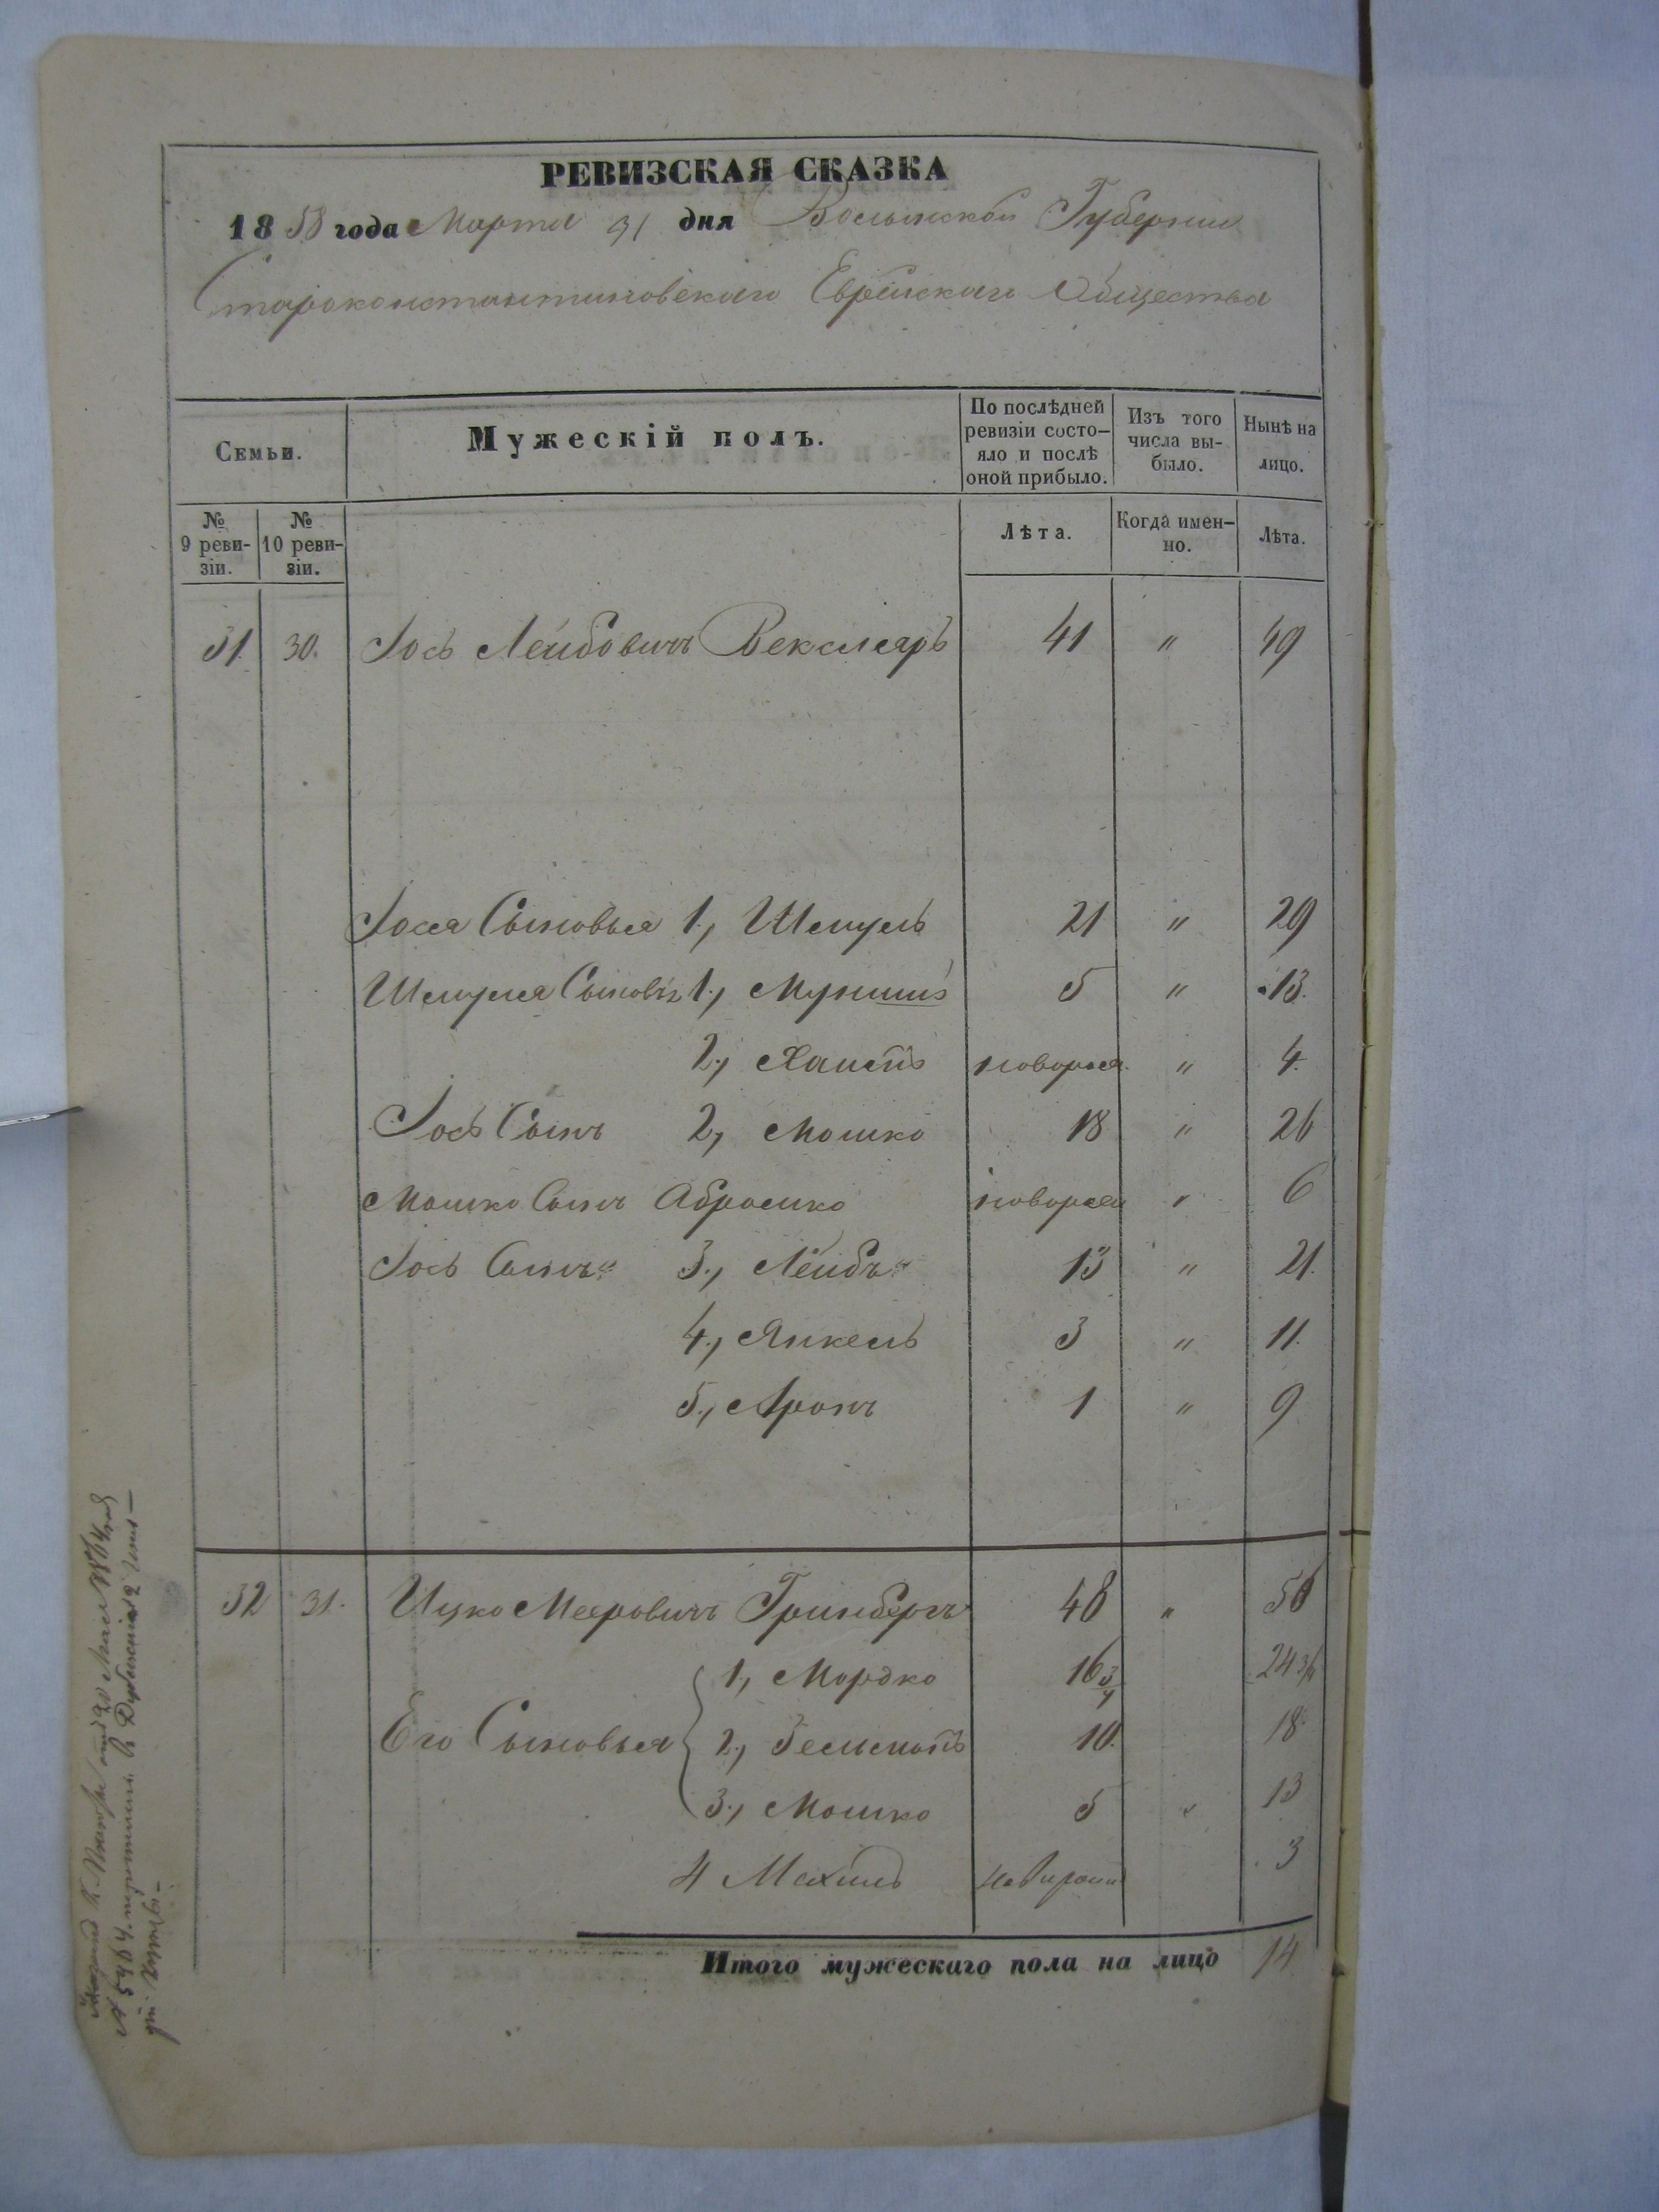 РЕВИЗСКАЯ СКАЗКА
1858 года Марта 31 дня Волынской Губернии
Староконстантиновскаго Еврейскаго Общества
Семьи.
Мужескій полъ.
По послѣдней ревизіи состо-яло и послѣ оной прибыло.
Изъ того числа вы-было.
Нынѣ на лицо.
№ 9 реви-зіи.
№ 10 реви-зіи.
Лѣта.
Когда имен-но.
Лѣта.
31. 30. Іось Лейбовичъ Векслеръ 41 " 49
Іося Сыновья 1., Шмуль 21 " 29
Шмуля Сыновья 1., 5 " 13.
2., новорож. " 4.
Іось Сынъ 2, Мошко 18 " 26
Мошко Сынъ Абрамко новорож " 6
Іось Сынъ 3., Лейбъ 13 " 21.
4., Янкель 3 " 11.
5., Аронъ 1 " 9
32 31. Ицко Мееровичъ Гринбергъ 48 " 56
Его Сыновья
1., Мордко 16 3/4 24 3/4
2., Зельманъ 10. 18.
3., Мошко 5 " 13
4 3
Итого мужескаго пола на лицо 14